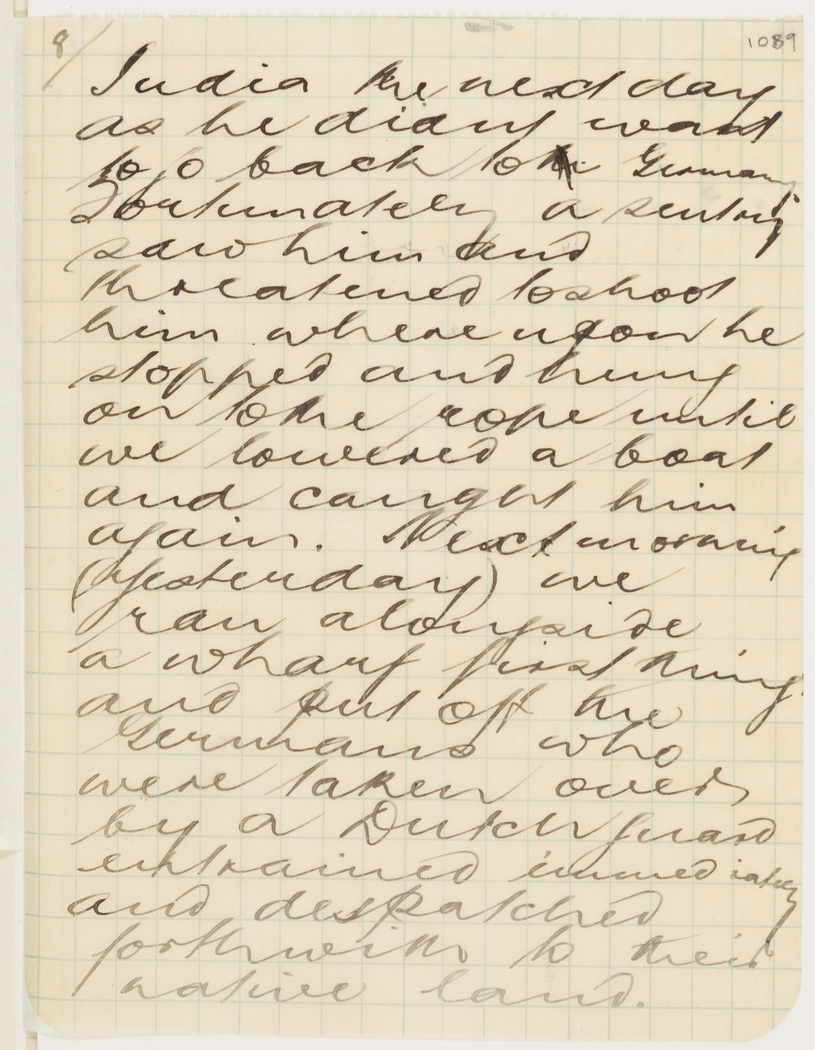 8/
1089
India the next day
as he didnt want
to go back to Germany
Fortunately a sentry
saw him and
threatened to shoot
him whereupon he
stopped and hung
on to the rope until
we lowered a boat
and caught him
again. Next morning
(yesterday) we
ran alongside
a wharf first thing
and put off the
Germans who
were taken over
by a Dutch guard
entrained immediately
and despatched
forthwith to their
native land.